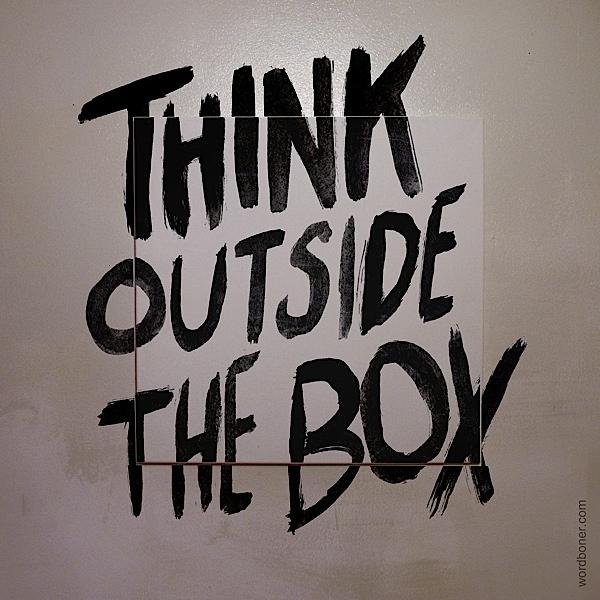 THINK
OUTSIDE
THE BOX
wordboner.com